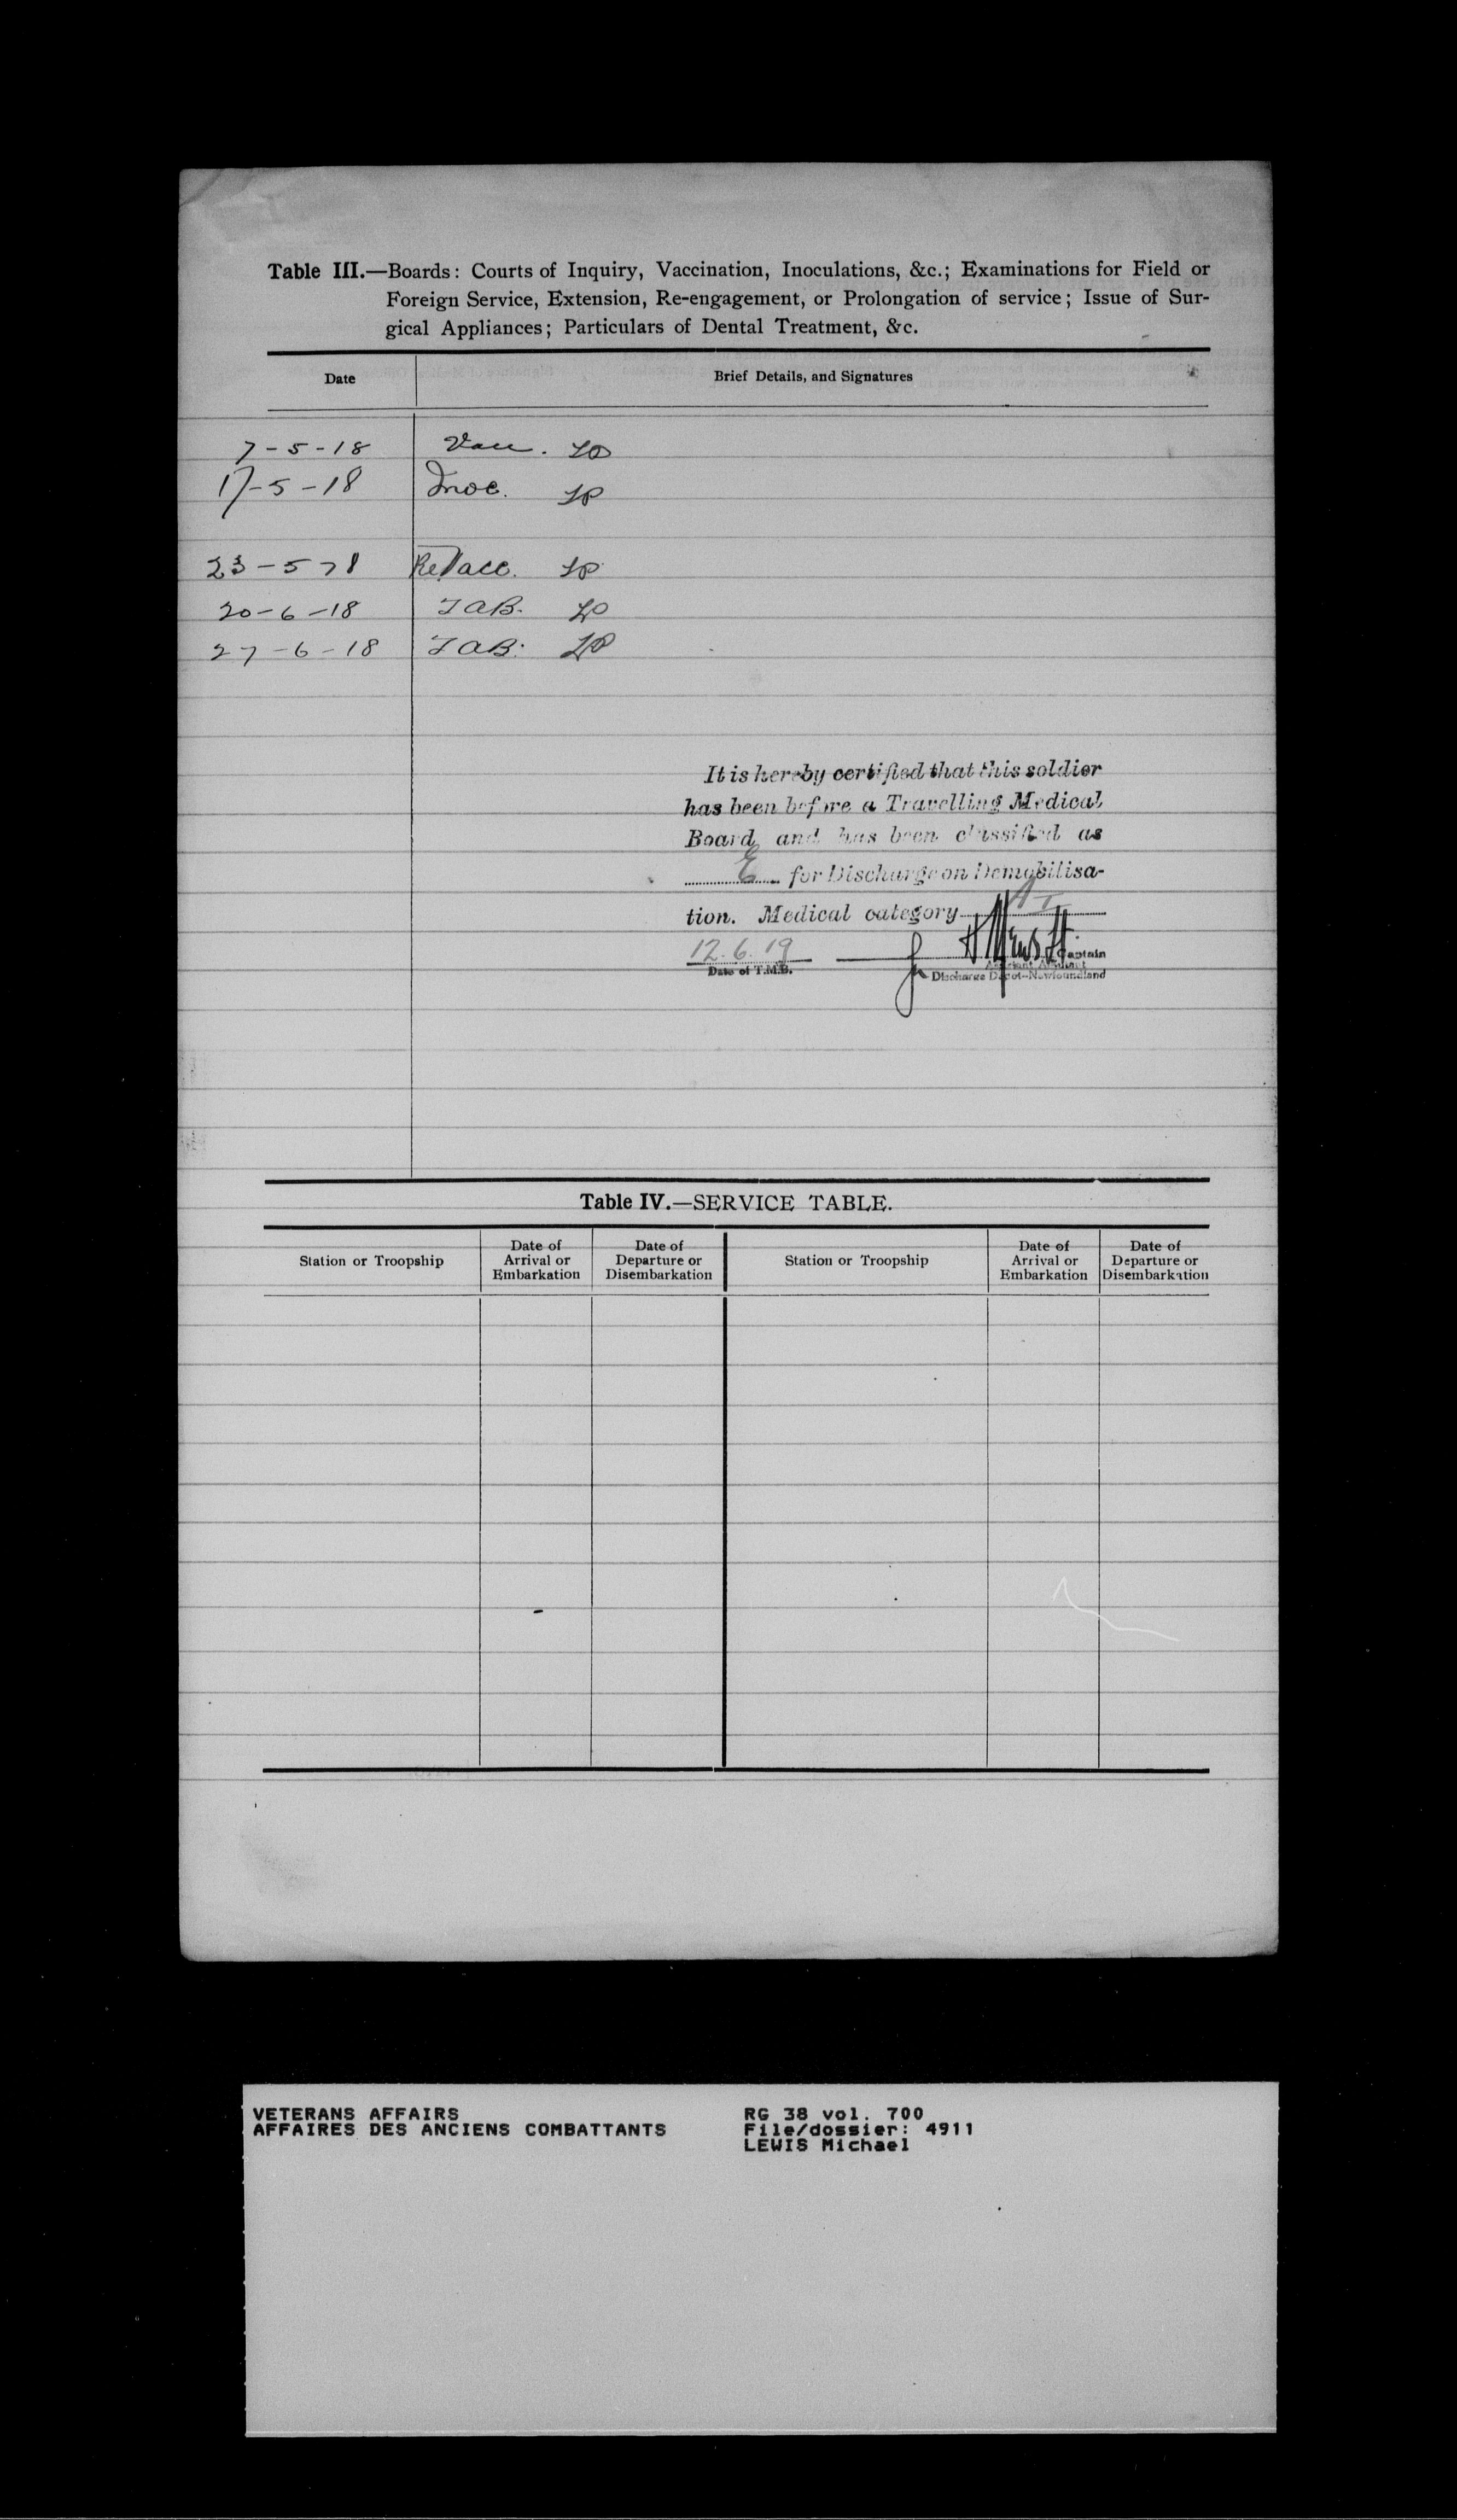 Table III.—Boards: Courts of Inquiry, Vaccination, Inoculations, &c.; Examinations for Field or
Foreign Service, Extension, Re-engagement, or Prolongation of service; Issue of Sur-
gical Appliances; Particulars of Dental Treatment, &c.
Date Brief Details, and Signatures
7-5-18 Vacc. LP
17-5-18 Inoc. LP
23-5-18 ReVacc. LP
20-6-18 TAB. LP
27-6-18 TAB. LP
It is hereby certified that this soldier
has been before a Travelling Medical
Board and has been classified as
E for Discharge on Demobilisa-
tion. Medical category A I
12.6.19 Captain
Date of T.M.B. Assistant Adjutant
Discharge Depot—Newfoundland
Table IV.—SERVICE TABLE.
Station or Troopship Date of Arrival or Embarkation Date of Departure or Disembarkation Station or Troopship Date of Arrival or Embarkation Date of Departure or Disembarkation
VETERANS AFFAIRS RG 38 vol. 700
AFFAIRES DES ANCIENS COMBATTANTS File/dossier: 4911
LEWIS Michael